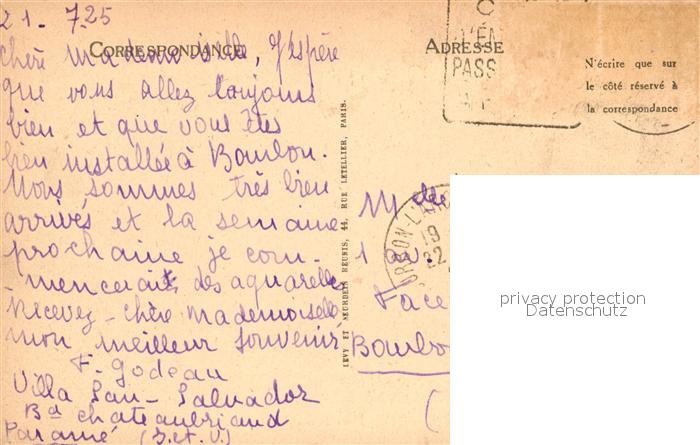 21 - 7.25
CORRESPONDANCE
chère mademoiselle, J'espère
que vous allez toujours
bien et que vous êtes
bien installée à Bourbon.
Nous sommes très bien
arrivés et la semaine
prochaine je com-
mencerait des aquarelles
Recevez - chère mademoiselle
mon meilleur souvenir
F. Godeau
Villa San-Salvador
Bd chateaubriand
Paramé (I. et V.)
LEVY ET NEURDEIN REUNIS, 44, RUE LETELLIER, PARIS.
ADRESSE
PASS
N'écrire que sur
le côté réservé à
la correspondance
Mlle
1 av.
Face
Bourbo
19
22
privacy protection
Datenschutz